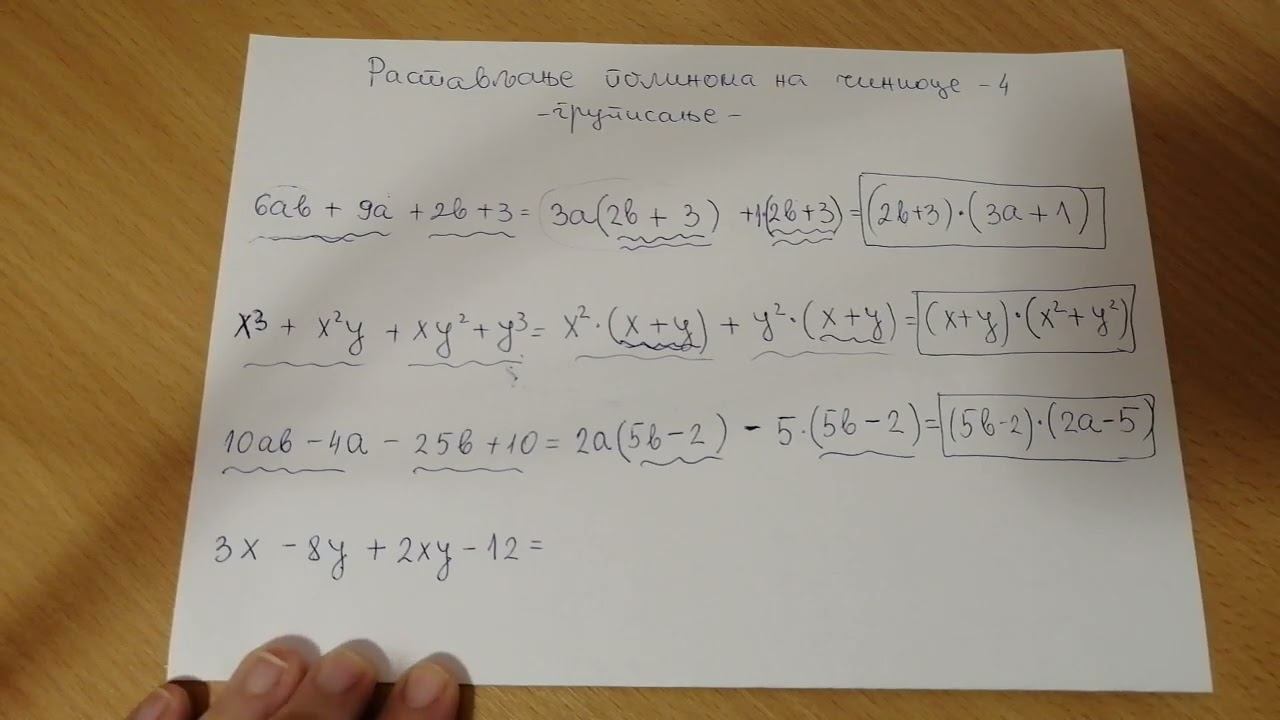 Растављање полинома на чиниоце - 4
- груписање -
6ab + 9a + 2b + 3 = 3a(2b + 3) + 1·(2b + 3) = (2b+3)·(3a + 1)
x³ + x²y + xy² + y³ = x²·(x + y) + y²·(x + y) = (x+y)·(x² + y²)
10ab - 4a - 25b + 10 = 2a(5b - 2) - 5·(5b - 2) = (5b-2)·(2a-5)
3x - 8y + 2xy - 12 =